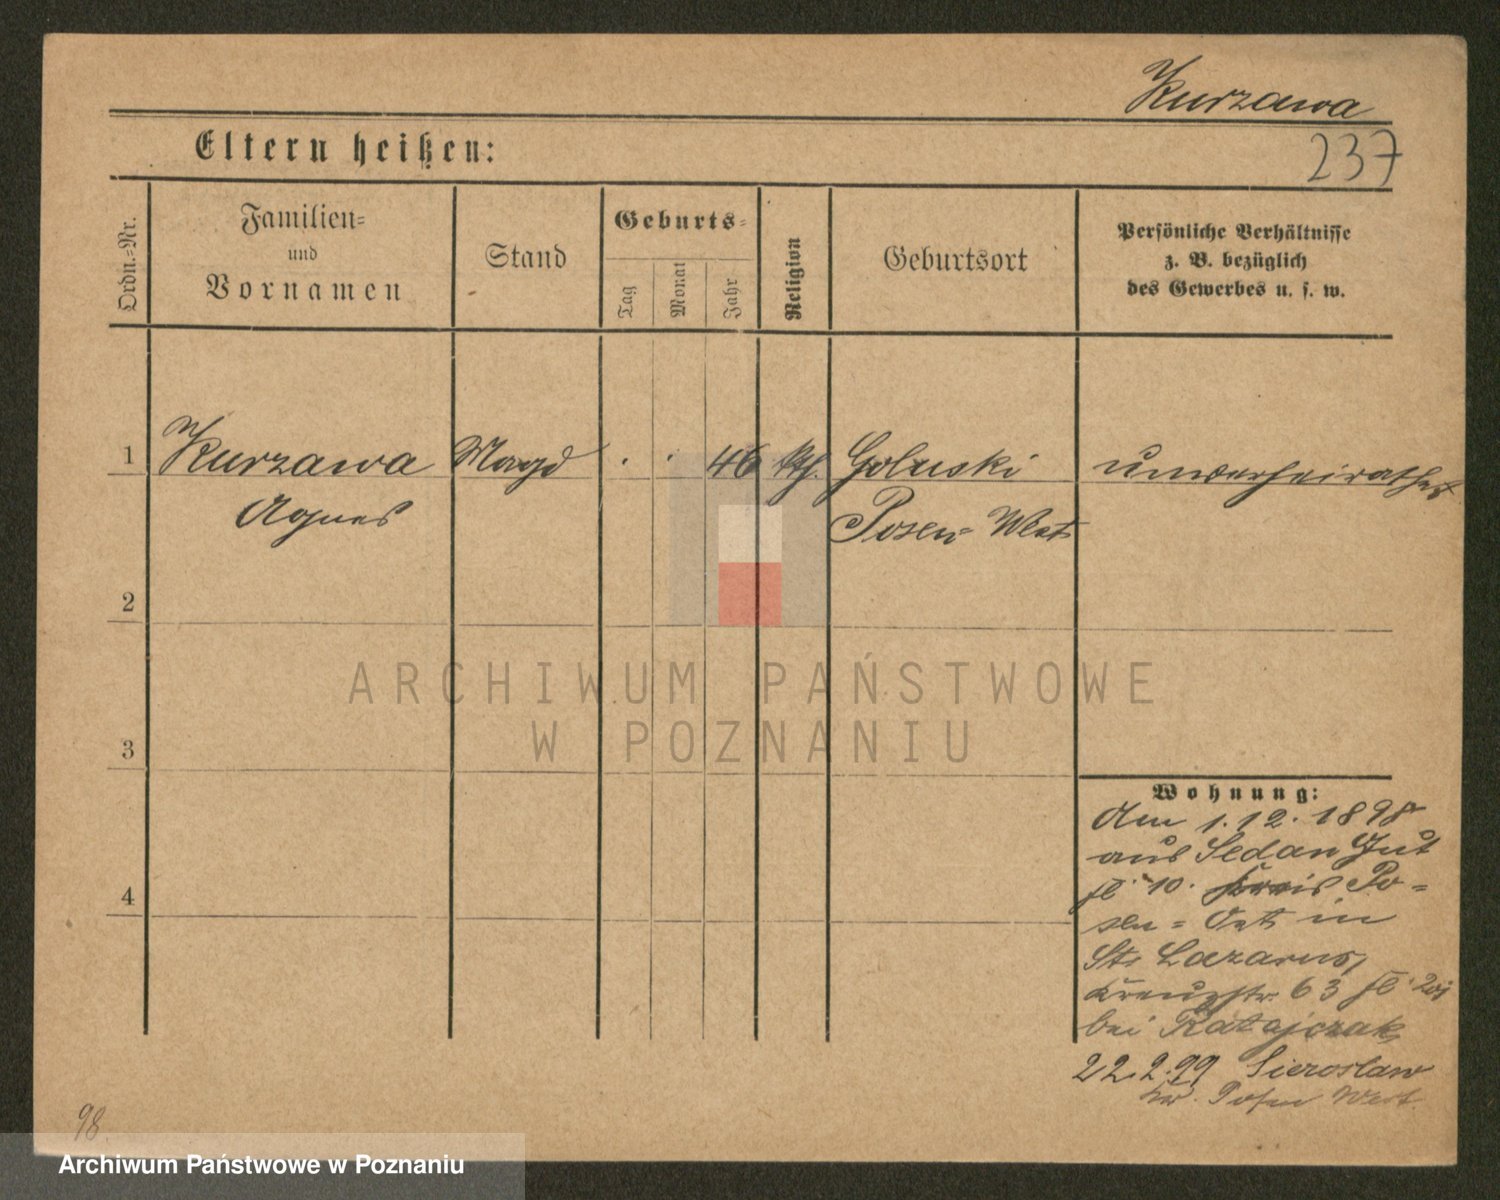 Kurzawa
237
Eltern heißen:
Ordn.-Nr.
Familien-
und
Vornamen
Stand
Geburts-
Tag
Monat
Jahr
Religion
Geburtsort
Persönliche Verhältnisse
z. B. bezüglich
des Gewerbes u. s. w.
1 Kurzawa Magd . . 46 kth. Goluski unverheirathet
Agnes Posen-West
2
3
4
Wohnung:
Am 1.12.1898
aus Sedan Gut
10. Kreis Po-
sen-Ost in
St. Lazarus,
Kreuzstr. 63
bei Ratajczak
22.2.99 Sieroslaw
Kr. Posen West.
98.
ARCHIWUM PAŃSTWOWE
W POZNANIU
Archiwum Państwowe w Poznaniu